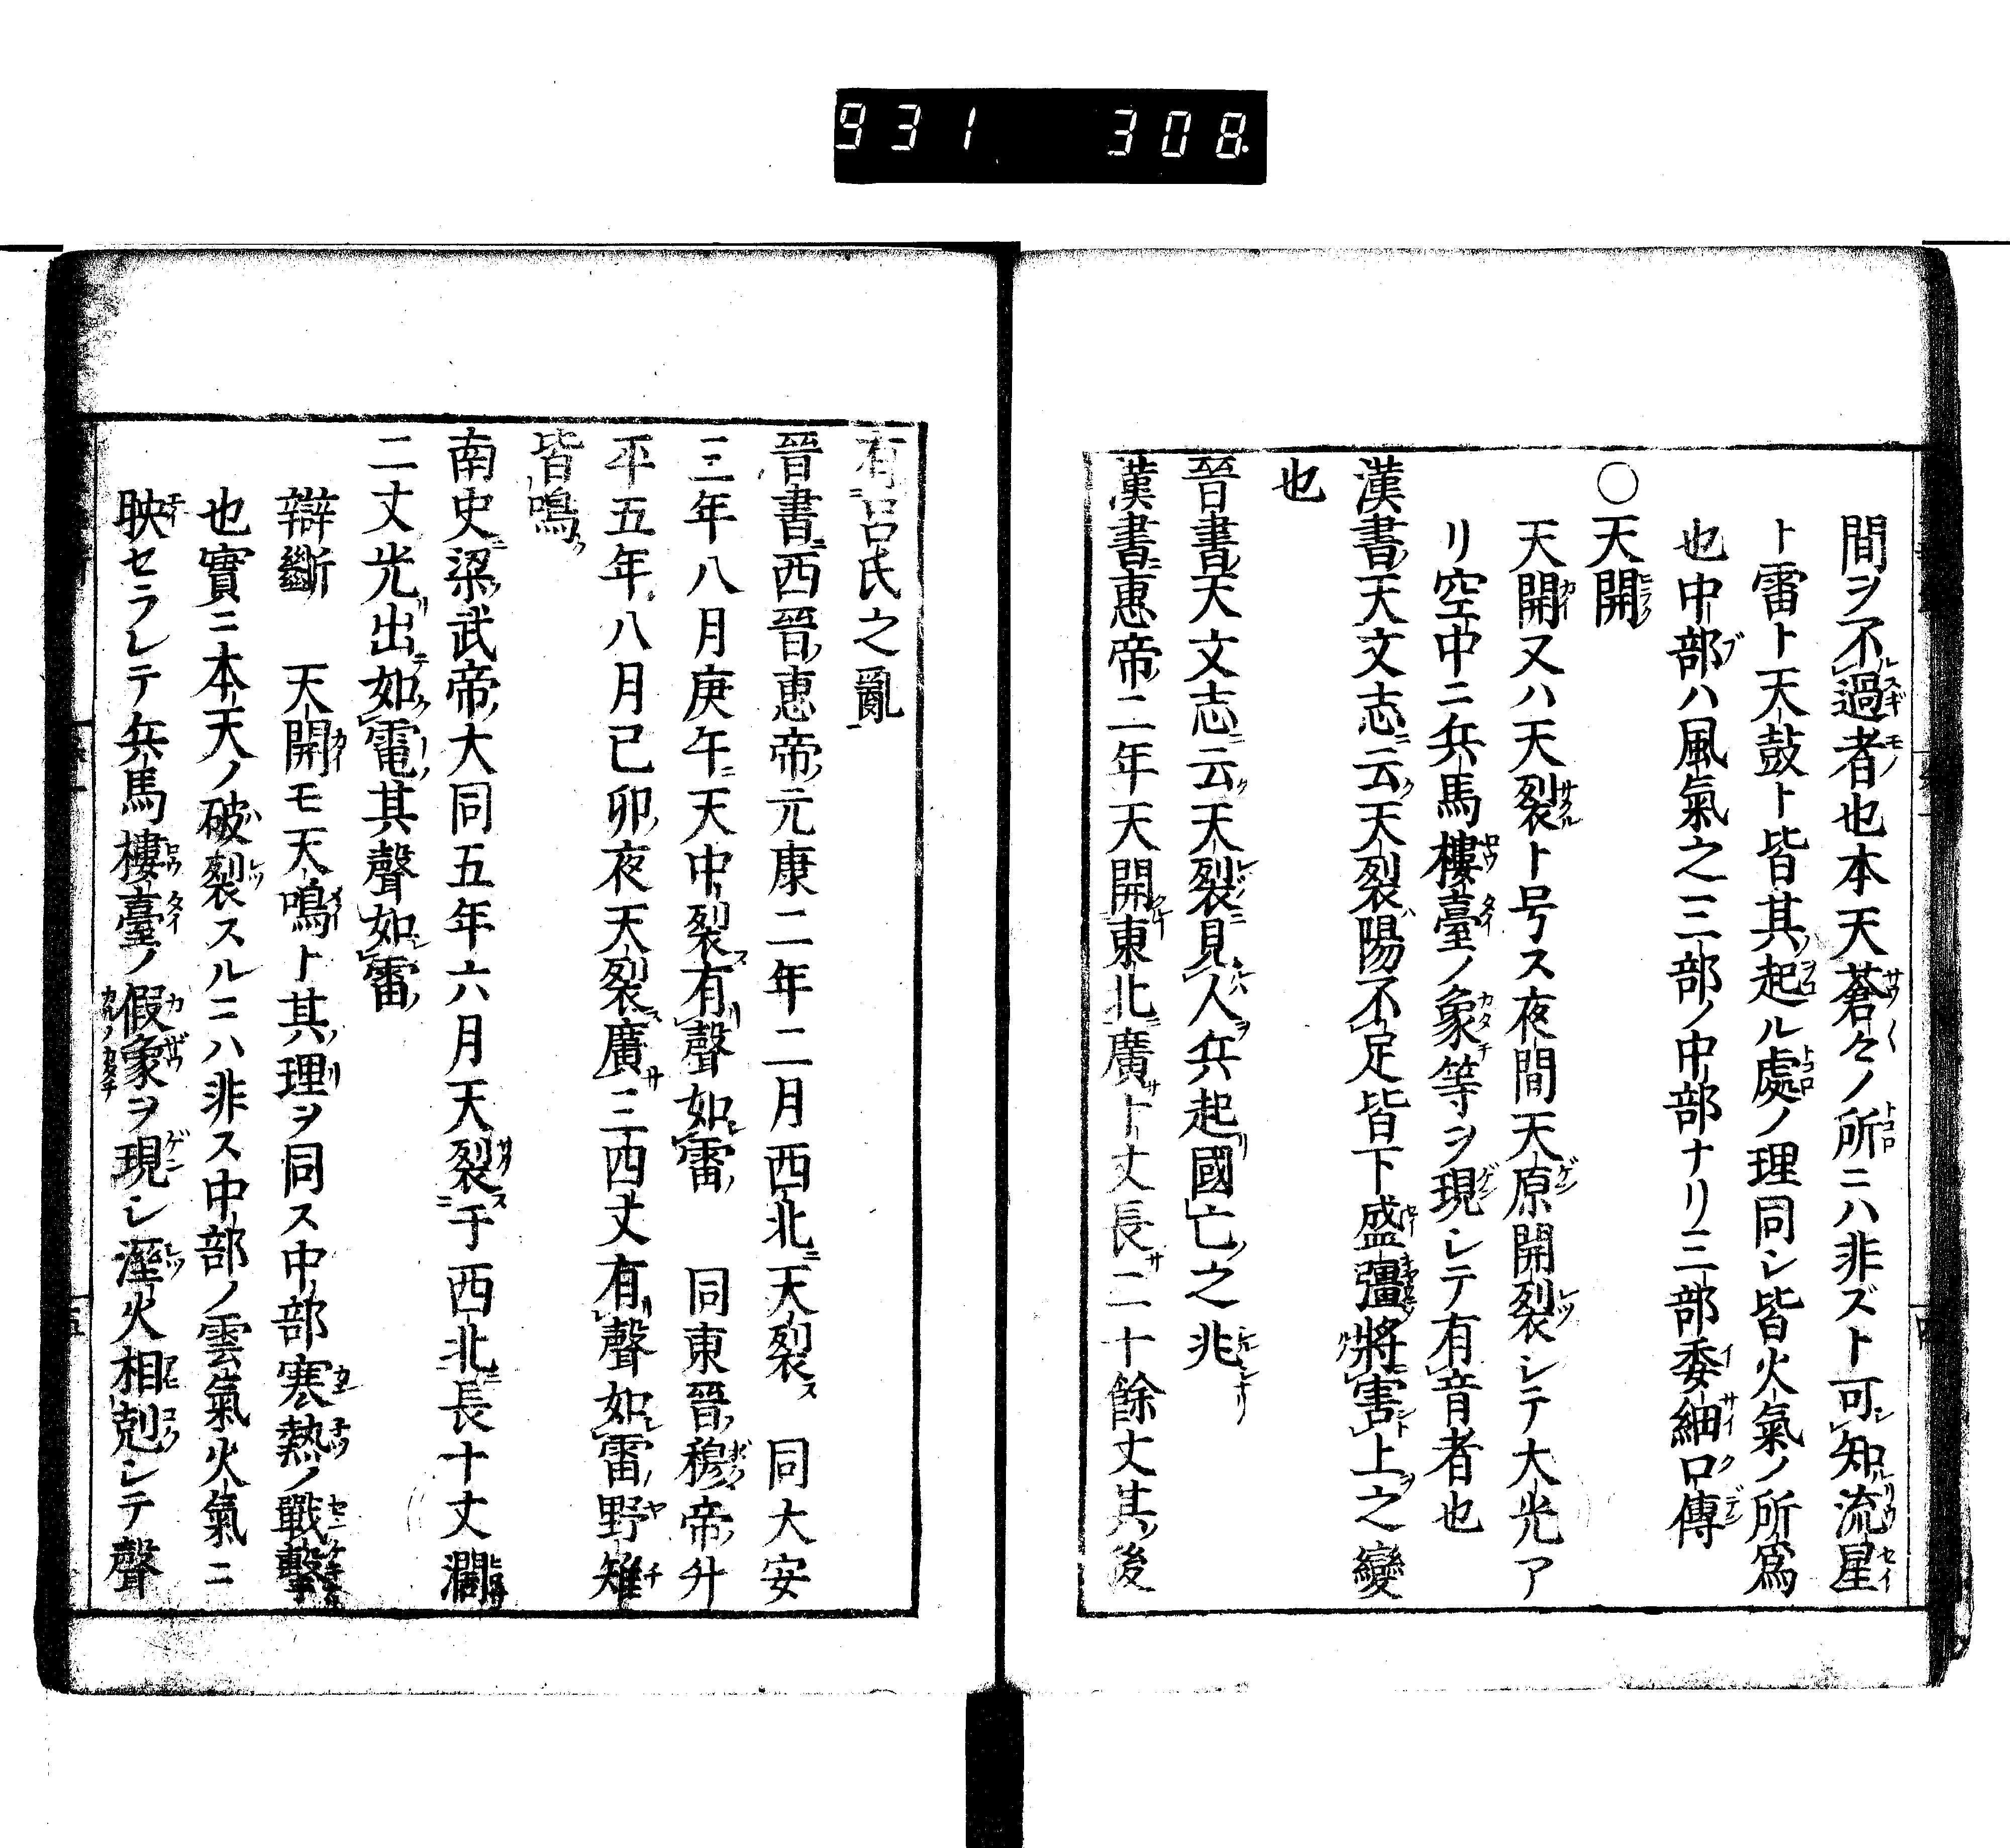 931 308
間ヲ不過者也本天蒼々ノ所ニハ非ズト可知流星
ト雷ト天鼓ト皆其起ル處ノ理同シ皆火氣ノ所爲
也中部ハ風氣之三部ノ中部ナリ三部委細口傳
○天開
天開又ハ天裂ト号ス夜間天原開裂シテ大光ア
リ空中ニ兵馬樓臺ノ象等ヲ現シテ有音者也
漢書天文志云天裂陽不足皆下盛彊將害上之變
也
晉書天文志云天裂見人兵起國亡之兆
漢書惠帝二年天開東北廣十丈長二十餘丈其後
有呂氏之亂
晉書西晉惠帝元康二年二月西北天裂 同大安
三年八月庚午天中裂有聲如雷 同東晉穆帝升
平五年八月已卯夜天裂廣三四丈有聲如雷野雉
皆鳴
南史梁武帝大同五年六月天裂于西北長十丈濶
二丈光出如電其聲如雷
辯斷 天開モ天鳴ト其理ヲ同ス中部寒熱ノ戰擊
也實ニ本天ノ破裂スルニハ非ス中部ノ雲氣火氣ニ
映セラレテ兵馬樓臺ノ假象ヲ現シ溼火相剋シテ聲